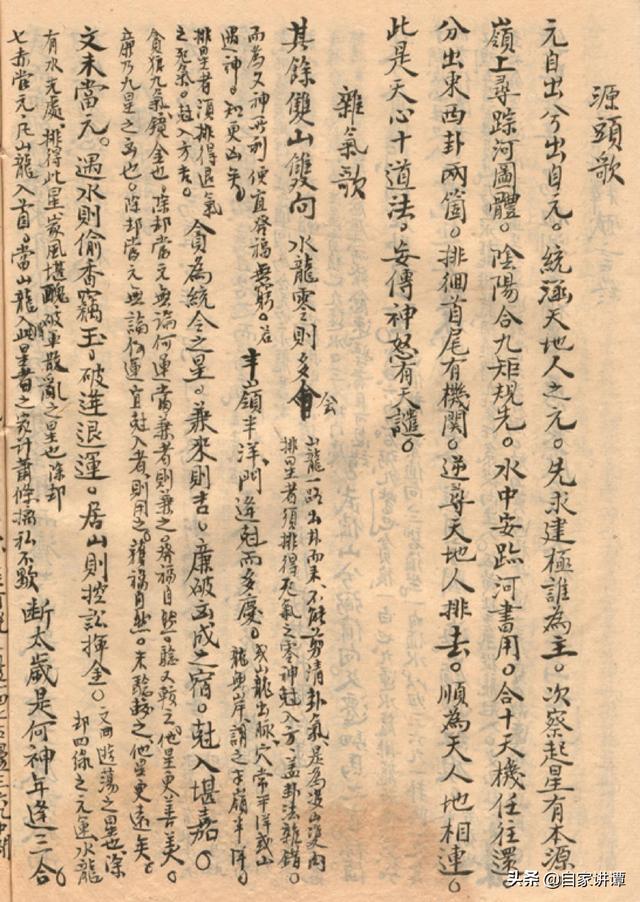 源頭歌
元自出兮出自元。統涵天地人之元。先求建極誰為主。次察起星有本源
嶺上尋踪河圖體。陰陽合九矩規先。水中安跡河書用。合十天機任往還。
分出東西卦兩箇。排徊首尾有機関。逆尋天地人排去。順為天人地相連。
此是天心十道法。妄傳神怒有天譴。
雜氣歌
其餘雙山雙向 水龍零則多會 公
山龍一路出卦而来、不能剪清卦氣、是為
排星者須排得死氣之零神尅入方、蓋卦法雜錯。
而為又神所利便宜發福無窮。若
遇神。知更凶矣。
半嶺半洋、門逢尅而多慶。
或山龍出脉、穴常平洋或山
龍無岸、謂之半嶺半洋。
排星者須排得退氣
之死氣。尅入方吉。
貪為統令之星。兼來則吉。廉破凶成之宿。尅入堪嘉。
貪狼九氣鏡金也、除却當元無論何運當兼者則兼之發福自然。他星更善美。
廉乃九星之
文未當元。遇水則偷香竊玉。破逆退運。居山則控訟揮金。
文曲遊蕩之星也除
却四綠之元運水龍
有水光處、排得此星、家風堪醜、破軍散亂之星也除却
七赤當元、凡山龍入首。當山龍入此星者之家計蕭條
断太歲是何神年逢三合。
头条 @自家讲谭